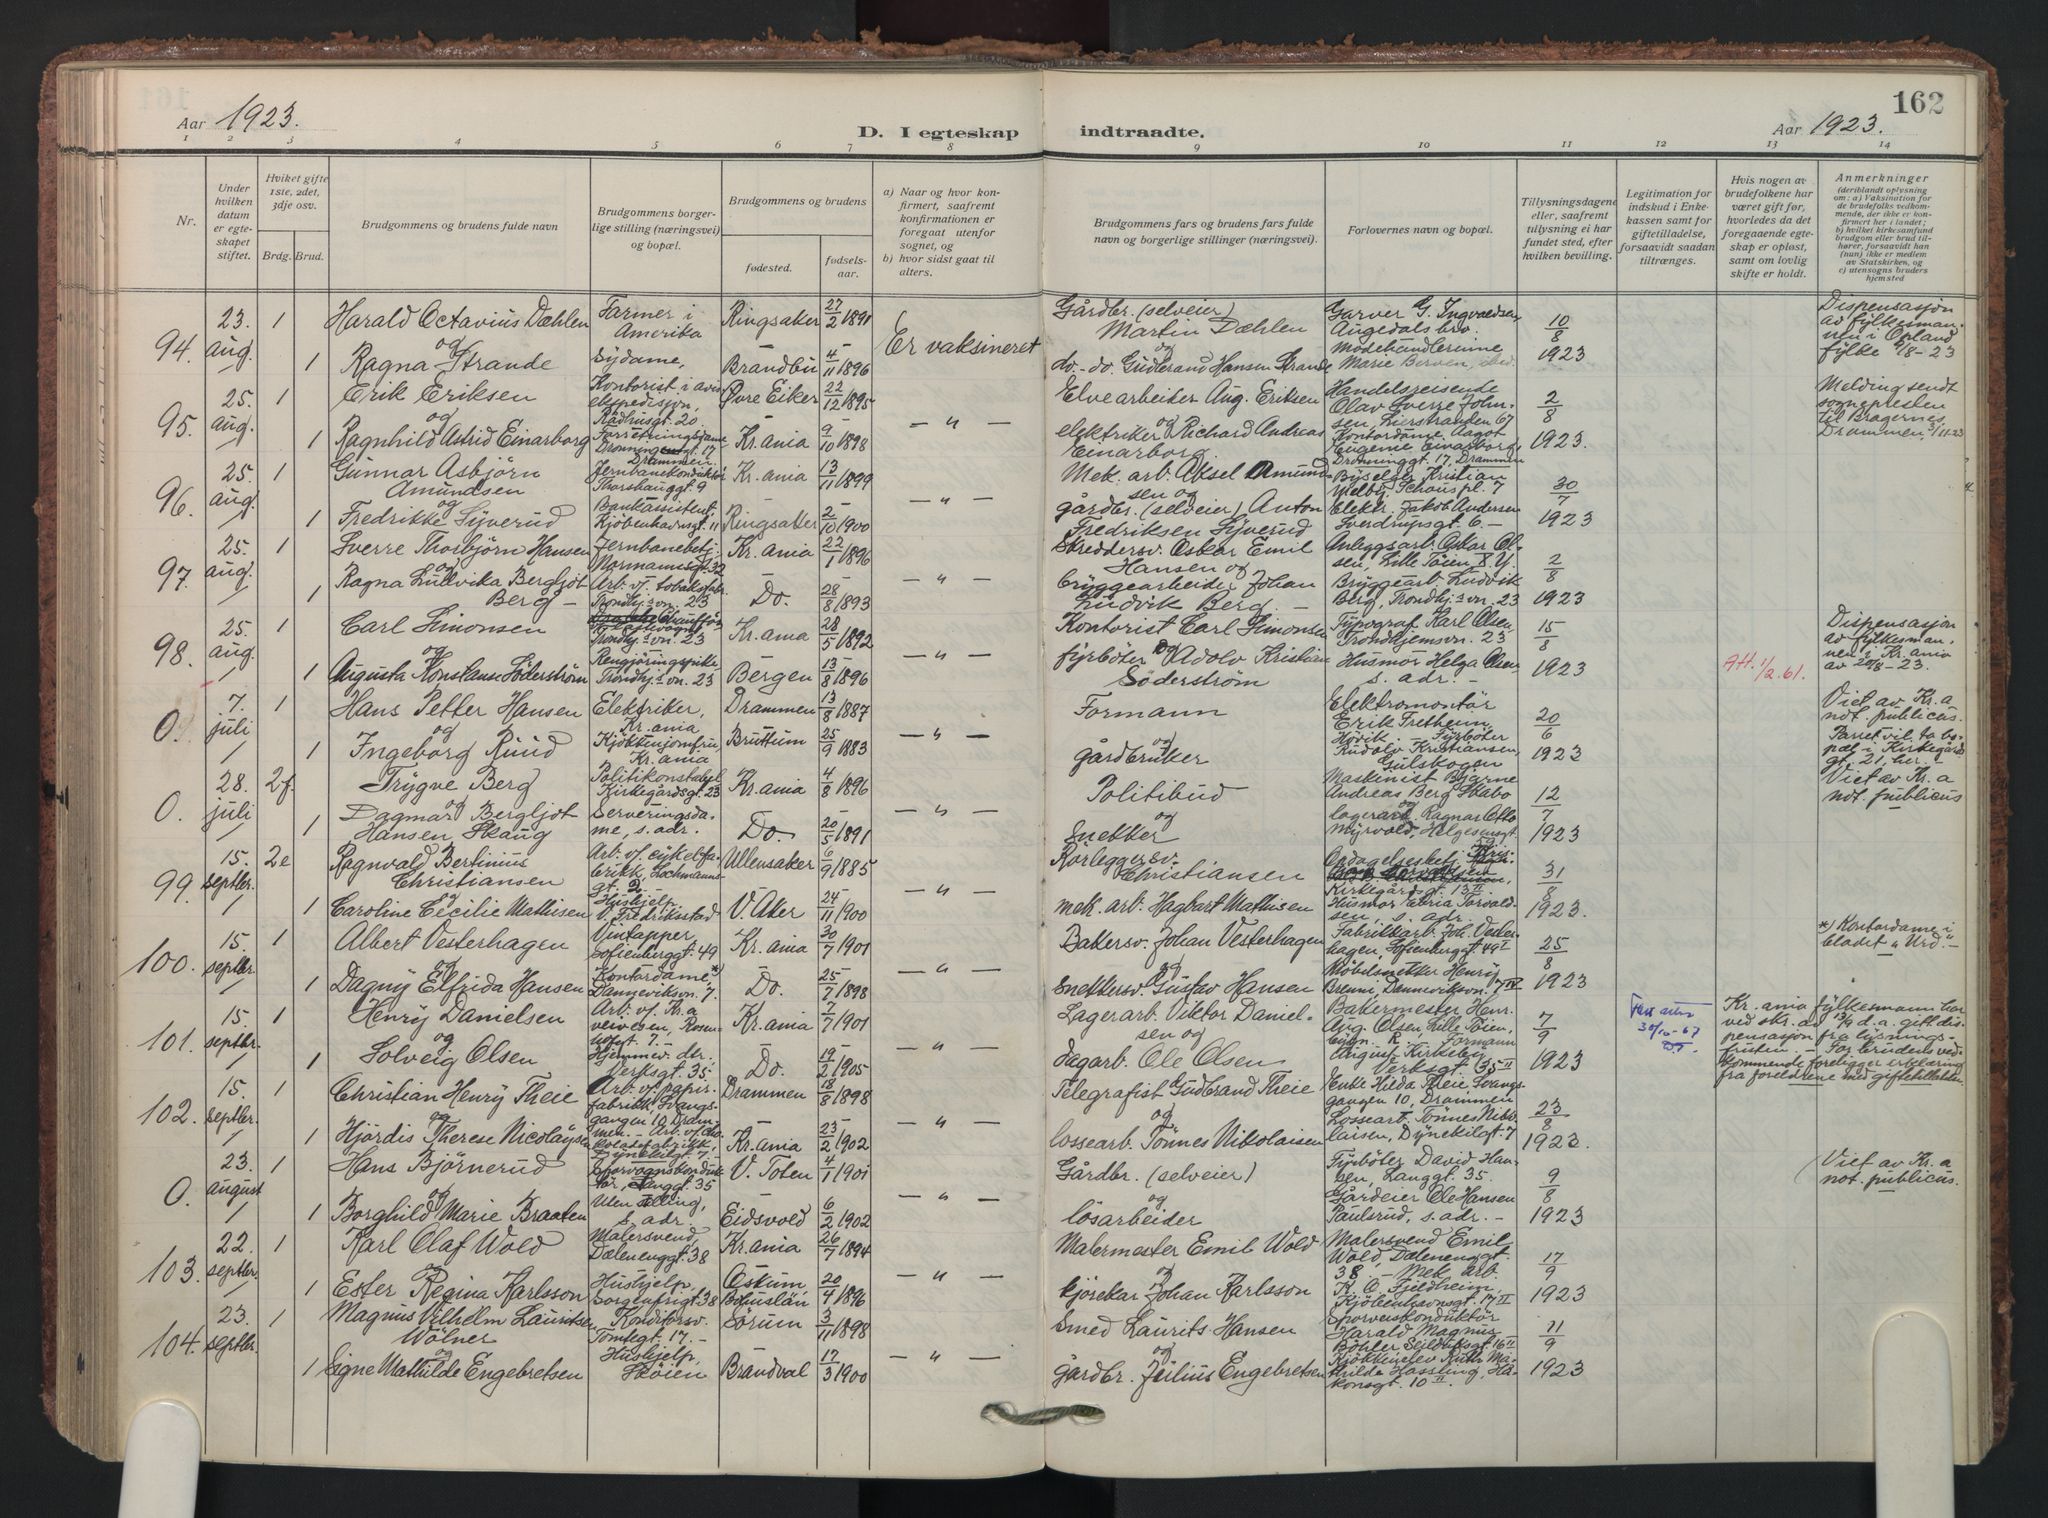 162
Aar 1923.
D. I egteskap indtraadte.
Aar 1923.
1 2 3 4 5 6 7 8 9 10 11 12 13 14
Nr.
Under hvilken datum er egteskapet stiftet.
Hviket gifte 1ste, 2det, 3dje osv.
Brdg. Brud.
Brudgommens og brudens fulde navn
Brudgommens borgerlige stilling (næringsvei) og bopæl.
Brudgommens og brudens
fødested.
fødselsaar.
a) Naar og hvor konfirmert, saafremt konfirmationen er foregaat utenfor sognet, og
b) hvor sidst gaat til alters.
Brudgommens fars og brudens fars fulde navn og borgerlige stillinger (næringsvei).
Forlovernes navn og bopæl.
Tillysningsdagene eller, saafremt tillysning ei har fundet sted, efter hvilken bevilling.
Legitimation for indskud i Enkekassen samt for giftetilladelse, forsaavidt saadan tiltrænges.
Hvis nogen av brudefolkene har været gift før, hvorledes da det foregaaende egteskap er opløst, samt om lovlig skifte er holdt.
Anmerkninger
(deriblandt oplysning om: a) Vaksination for de brudefolks vedkommende, der ikke er konfirmert her i landet; b) hvilket kirkesamfund brudgom eller brud tilhører, forsaavidt han (hun) ikke er medlem av Statskirken, og c) utensogns bruders hjemsted
94. 23. aug. 1 Harald Octavius Dæhlen Farmer i Amerika Ringsaker 27/2 1891 Er vaksineret Gårdbr. (selveier) Martin Dæhlen Garver G. Ingvaldsen, Augedals bro. 10/8 1923 Dispensasjon av fylkesmannen i Opland fylke 8-23
og
1 Ragna Strande Sydame, Brandbu 4/11 1896 do.-do. Gudbrand Hansen Strande Modehandlerinne Marie Berven,
95. 25. aug. 1 Erik Eriksen Kontorist i avisekspedisjon, Rådhusgt. 20 Øvre Eiker 22/12 1895 — " — Elvearbeider Aug. Eriksen Handelsreisende Olav Sverre Johnsen, Lierstranden 67 2/8 1923. Melding sendt sognepresten til Bragernes, Drammen,
og
1 Ragnhild Astrid Einarborg Forretningsdame Dronningensgt. 17 Drammen Kr.ania 9/10 1898 elektriker Richard Andreas Einarborg Kontordame Aagot Eugenie Einarborg, Dronninggt. 17, Drammen
96. 25. aug. 1 Gunnar Asbjörn Amundsen Jernbanekonduktör Thorshauggt. 9 Kr.ania 13/11 1899 — " — Mek. arb. Aksel Amundsen og Kristian Melby, Schous pl. 7 30/7 1923
og
1 Fredrikke Syverud Bankassistent, Kjöbenhavnsgt. 11 Ringsaker 2/10 1900 gårdbr. (selveier) Anton Fredriksen Syverud Elektr. Jakob Andersen Sverdrupsgt. 6. —
97. 25. aug. 1 Sverre Thorbjörn Hansen Jernbanebetj. Normannsgt. 32 Kr.ania 22/1 1896 — " — Skreddersv. Oskar Emil Hansen og Anleggsarb. Oskar Olsen, Lille Töien, 2/8 1923
og
1 Ragna Ludvika Bergljot Berg — Arb. v/ tobaksfabr. Trondhj.s vn. 23 Do. 28/8 1893 bryggearbeider Johan Ludvik Berg. — Bryggearb. Ludvik Berg, Trondhj.s vn. 23
98. 25. aug. 1 Carl Simonsen Trondhj.s vn. 23 Kr.ania 28/5 1892 — " — Kontorist Carl Simonsen Typograf Karl Olsen, Trondhjemsvn. 23 15/8 1923 Att. 1/2.61. Dispensasjon av fylkesmannen i Kr.ania av 20/8-23.
og
1 Augusta Konstanse Söderström Rengjöringspike, Trondhj.s vn. 23 Bergen 13/8 1896 fyrböter Adolv Kristian Söderström Husmor Helga Olsen s. adr. —
0. 7. juli 1 Hans Petter Hansen Elektriker, Kr.ania Drammen 13/8 1887 — " — Formann Elektromontör Erik Tretheim, Hövik. — Fyrböter 20/6 1923 Viet av Kr.a not. publicus. Paret vil ta bopæl i Kirkegårdsgt. 21, her. —
og
1 Ingeborg Ruud Kjökkenjomfru, Kr.ania Bruttum 25/9 1883 gårdbruker Rudolv Kristiansen, Gulskogen
0. 28. juli 2f. Trygve Berg Politikonstabel Kirkegårdsgt. 23 Kr.ania 4/8 1896 — " — Politibud Maskinist Bjarne Andreas Berg Skabo 12/7 1923 Viet av Kr.a not. publicus
og
1 Dagmar Bergljot Hansen Skaug Serveringsdame, s. adr. Do. 20/5 1891 Snekker lagerarb. Ragnar Otto Myrvold, Helgesensgt.
99. 15. septbr. 2e Ragnvald Bertinius Christiansen Arb. v/ cykelfabrikk, Lochmannsgt. 2. Ullensaker 6/9 1885 — " — Rörleggersv. Christiansen Kirkegårdsgt. 13 II 31/8 1923.
og
1 Caroline Cecilie Mathisen Hushjelp. V. Fredriksstad V. Aker 24/11 1900 mek. arb. Hagbart Mathisen Husmor Maria Torvaldsen, s. adr.
100. 15. septbr. 1 Albert Vesterhagen Vintapper, Sofienberggt. 49 Kr.ania 30/7 1901 — " — Bakersv. Johan Vesterhagen Fabrikkarb. Joh. Vesterhagen, Sofienberggt. 49 I 25/8 1923 *) Kontordame i bladet „Urd“. —
og
1 Dagny Elfrida Hansen Kontordame, *) Danneviksvn. 7. Do. 25/7 1898 Snekkersv. Gustav Hansen Möbelsnekker Henry Brenni, Dannevikson. 7 IV
101. 15. septbr. 1 Henry Danielsen Arb. v/ Kr.a veivesen, Rosenhofgt. 7. — Kr.ania 7/7 1901 — " — Lagerarb. Viktor Danielsen og Bakermester Henr. Aug. Olsen, Lille Töien, 7/9 1923 30/10-67 Kr.ania fylkesmann har ved skr. av 13/9 d.a. gitt dispensasjon fra lysningsfristen. — For brudens vedkommende foreligger erklæring fra foreldrene med giftetillatelse.
og
1 Solveig Olsen Hjemmev. dtr, Verksgt. 35 Do. 19/2 1905 dagarb. Ole Olsen Formann August Kirkeby Verksgt. 35 II
102. 15. septbr. 1 Christian Henry Theie Arb. v/ papirfabrikk, Svangsgangen 10 Drammen. — Drammen 18/8 1898 — " — Telegrafist Gudbrand Theie Enke Hilda Theie Svangsgangen 10, Drammen 23/8 1923.
og
1 Hjördis Therese Nicolaysen Arb. v/ chokoladefabrikk, Dynekilgt. 7. — Kr.ania 23/2 1902 lossearb. Tönnes Nikolaisen Lossearb. Tönnes Nikolaisen, Dynekilgt. 7
0. 23. august 1 Hans Björnerud Sporvognskonduktör, Langgt. 35 V. Toten 4/1 1901 — " — Gårdbr. (selveier) Fyrböter David Hansen, Langgt. 35. 9/8 1923 Viet av Kr.a not. publicus.
og
1 Borghild Marie Braaten Uten stilling, s. adr. Eidsvold 6/2 1902 lösarbeider Gårdeier Ole Hansen Paulsrud, s. adr. —
103. 22. septbr. 1 Karl Olaf Wold Malersvend, Dælenenggt. 38 Kr.ania 26/7 1894 — " — Malermester Emil Wold Malersvend Emil Wold, Dælenenggt. 38. — Mek. arb. 17/9 1923
og
1 Ester Regina Karlsson Hushjelp, Sorgenfrigt. 38 Oskum, Bohuslän 20/4 1896 kjörekar Johan Karlsson K. O. Fjeldheim, Kjöbenhavnsgt. 17 II
104. 23. septbr. 1 Magnus Vilhelm Lauritsen Wölner Konditorsv. Tomtegt. 17. — Sörum 3/11 1898 — " — Smed Laurits Hansen Sporveiskonduktör Harald Magnus Böhler, Seilduksgt. 16 II 11/9 1923
og
1 Signe Mathilde Engebretsen Hushjelp, Sköien Brandval 17/3 1900 gårdbr. Julius Engebretsen Kjökkenelev Ruth Mathilde Hassling, Håkonsgt. 10 II.